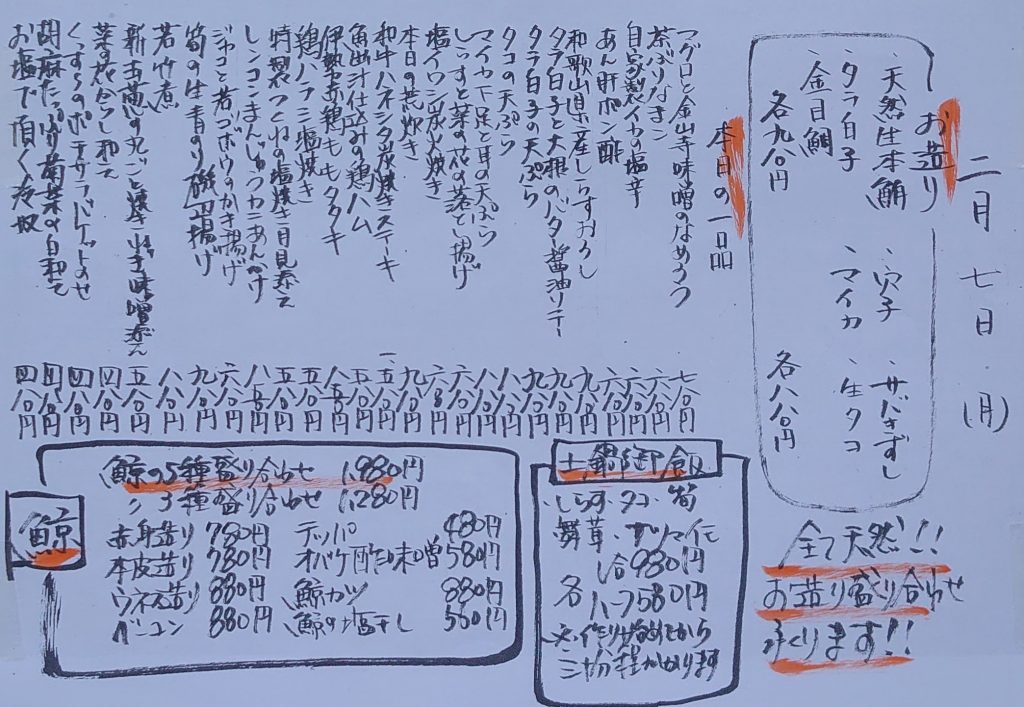 二月七日(月)
お造り
・天然生本鮪
・タラ白子
・金目鯛
各九八〇円
・穴子
・サバきずし
・マイカ
・生タコ
各八八〇円
全て天然!!
お造り盛り合わせ
承ります!!
本日の一品
マグロと金山寺味噌のなめろう 七八〇円
茶ぶりなまこ 六八〇円
自家製イカの塩辛 六八〇円
あん肝ポン酢 八八〇円
和歌山県産しらすおろし
タラ白子と大根のバター醤油ソテー 九八〇円
タラ白子の天ぷら 九八〇円
タコの天ぷら 八八〇円
マイカ下足と耳の天ぷら 八八〇円
しらすと菜の花の落とし揚げ 六八〇円
塩イワシ炭火焼き 六八〇円
本日の荒炊き 九八〇円
和牛ハネシタ炭焼きステーキ
魚出汁仕込みの鶏ハム 六八〇円
伊勢赤鶏ももタタキ 八五〇円
鶏ハラミ塩焼き 五八〇円
特製つくねの塩焼き 月見添え 五八〇円
レンコンまんじゅうカニあんかけ 八五〇円
ジャコと若ゴボウのかき揚げ 六八〇円
筍の生青のり磯部揚げ 九八〇円
若竹煮 八八〇円
新玉葱の丸ごと焼き 味噌添え 五八〇円
菜の花からし和え 四八〇円
くっさらのポテサラバケットのせ 四八〇円
胡麻たっぷり菊菜の白和え 四八〇円
お塩で頂く冷奴 四八〇円
土鍋御飯
・しらす・タコ・筍
舞茸・サツマイモ
各 一合980円
ハーフ580円
※作り始めてから
三十分程かかります
鯨
鯨の5種盛り合わせ 1,980円
〃 3種盛り合わせ 1,280円
赤身造り 780円 テッパ 480円
本皮造り 780円 オバケ酢味噌 580円
ウネス造り 880円 鯨カツ 880円
ベーコン 880円 鯨の塩干し 550円